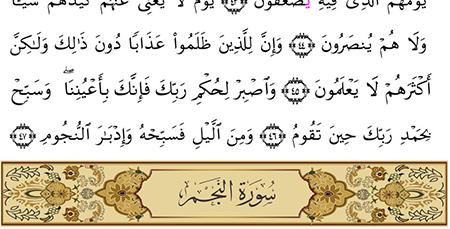 يَوْمَهُمُ الَّذِى فِيهِ يَصْعَقُونَ ٤٣ يَوْمَ لَا يُغْنِى عَنْهُمْ كَيْدُهُمْ شَيْـًٔا
وَلَا هُمْ يُنصَرُونَ ٤٤ وَإِنَّ لِلَّذِينَ ظَلَمُواْ عَذَابًا دُونَ ذَٰلِكَ وَلَٰكِنَّ
أَكْثَرَهُمْ لَا يَعْلَمُونَ ٤٥ وَاصْبِرْ لِحُكْمِ رَبِّكَ فَإِنَّكَ بِأَعْيُنِنَا ۖ وَسَبِّحْ
بِحَمْدِ رَبِّكَ حِينَ تَقُومُ ٤٦ وَمِنَ الَّيْلِ فَسَبِّحْهُ وَإِدْبَٰرَ النُّجُومِ ٤٧
سُورَةُ النَّجْمِ